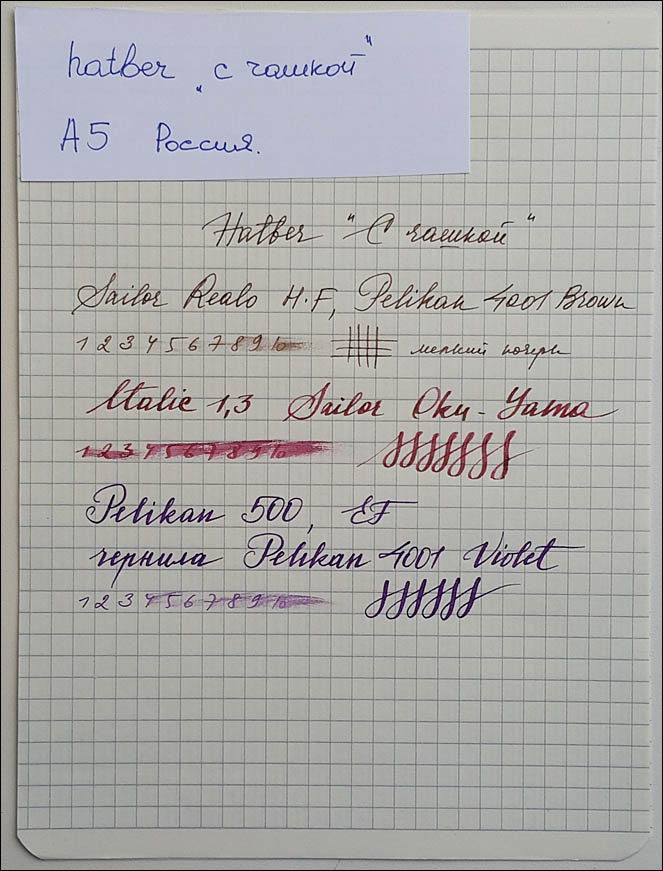 hatber „с чашкой"
А5 Россия.
Hatber "С чашкой"
Sailor Realo H.F, Pelikan 4001 Brown
1 2 3 4 5 6 7 8 9 10 мелкий почерк
Italic 1,3 Sailor Oku-Yama
1 2 3 4 5 6 7 8 9 10
Pelikan 500, EF
чернила Pelikan 4001 Violet
1 2 3 4 5 6 7 8 9 10